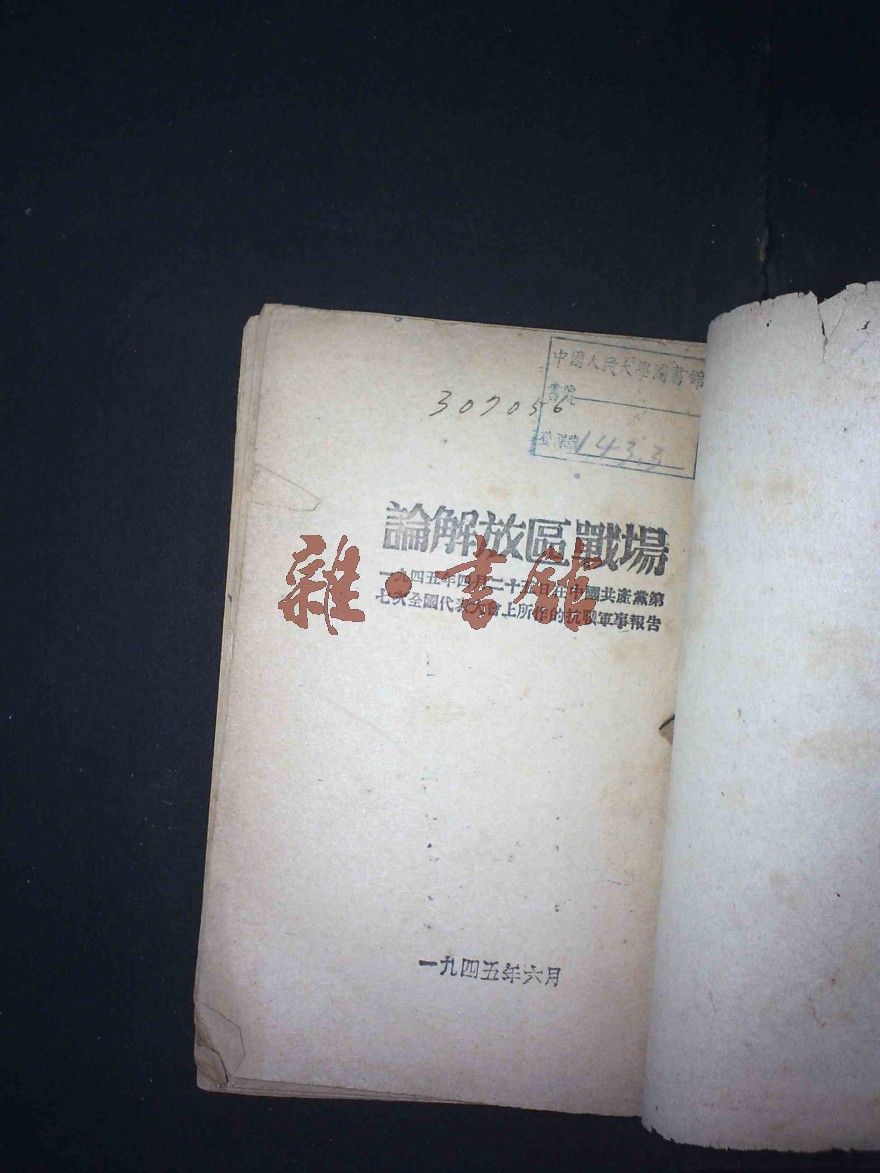 中國人民大學圖書館
書號
307056
登錄號 143.3
論解放區戰場
一九四五年四月二十五日在中國共產黨第
七次全國代表大會上所作的抗戰軍事報告
雜·書館
一九四五年六月